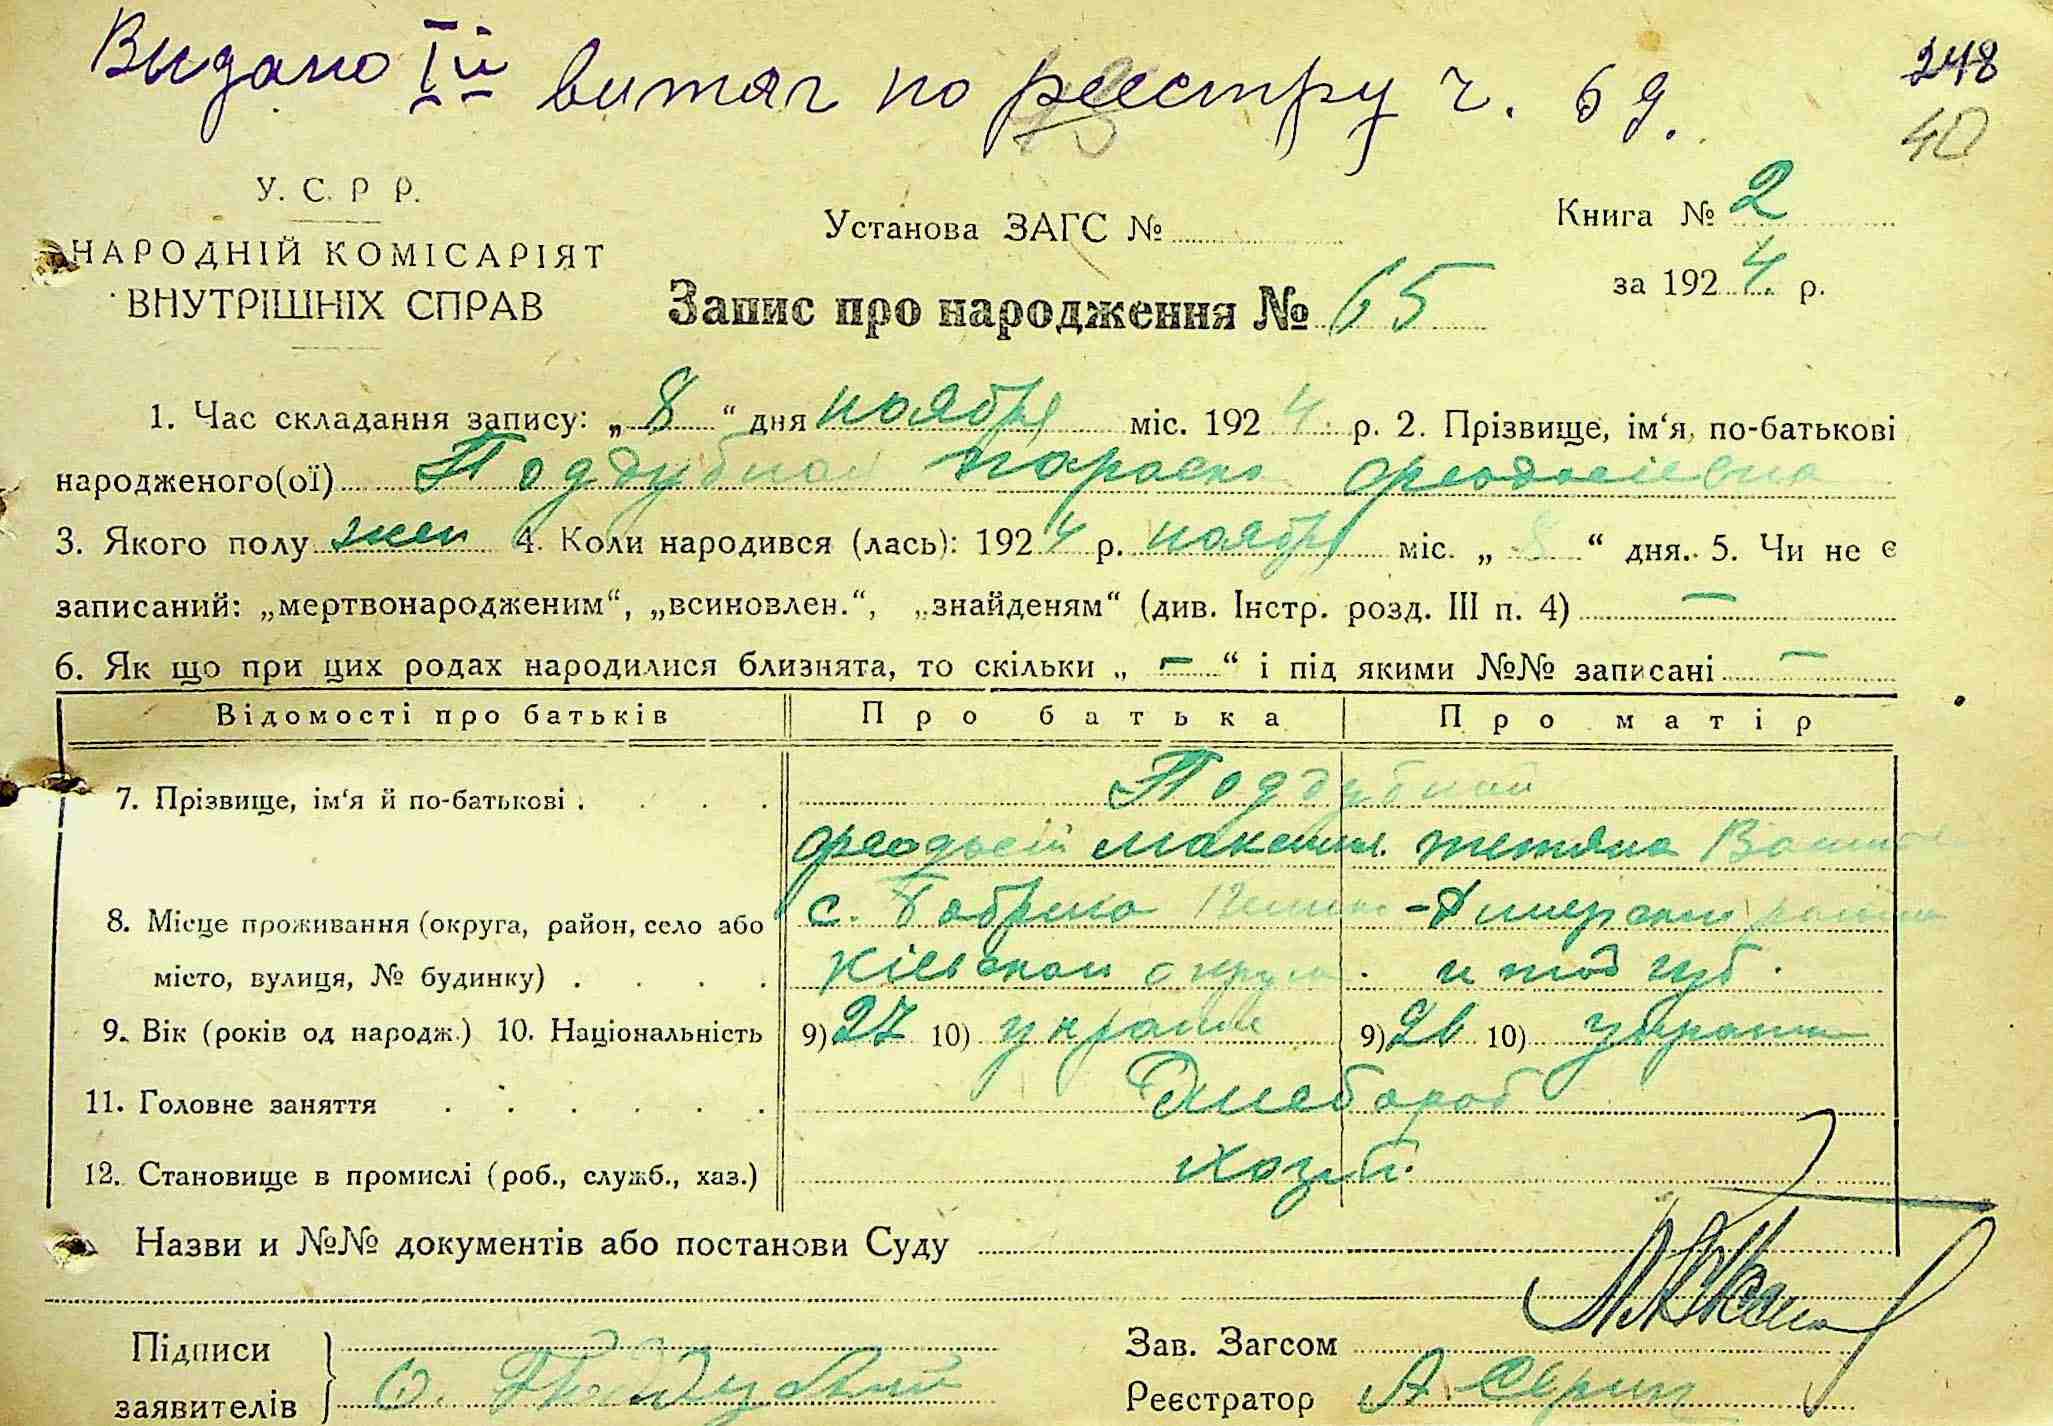 Выдано Iй витяг по реестру ч. 69.
248
40
У. С. Р Р.
НАРОДНІЙ КОМІСАРІЯТ
ВНУТРІШНІХ СПРАВ
Установа ЗАГС №
Книга № 2
за 1924 р.
Запис про народження № 65
1. Час складання запису: „8“ дня ноября міс. 1924 р. 2. Прізвище, ім‘я, по-батькові
народженого(ої) Поддубная Параска Феодосіевна
3. Якого полу жен 4. Коли народився (лась): 1924 р. ноября міс. „8“ дня. 5. Чи не є
записаний: „мертвонародженим“, „всиновлен.“, „знайденям“ (див. Інстр. розд. III п. 4) —
6. Як що при цих родах народилися близнята, то скільки „—“ і під якими №№ записані —
Відомості про батьків Про батька Про матір
7. Прізвище, ім‘я й по-батькові . . . . Поддубний
Феодосій Максим. Тетяна
8. Місце проживання (округа, район, село або с. Бобрика Димерский района
місто, вулиця, № будинку) . . . . Кіевской округи. и тод губ.
9. Вік (років од народж.) 10. Національність 9) 27 10) украин 9) 26 10) украин
11. Головне заняття . . . . . . Хлебороб
12. Становище в промислі (роб., служб., хаз.) хозяй.
Назви и №№ документів або постанови Суду
Підписи
заявителів Ф. Поддубний
Зав. Загсом
Реєстратор А.